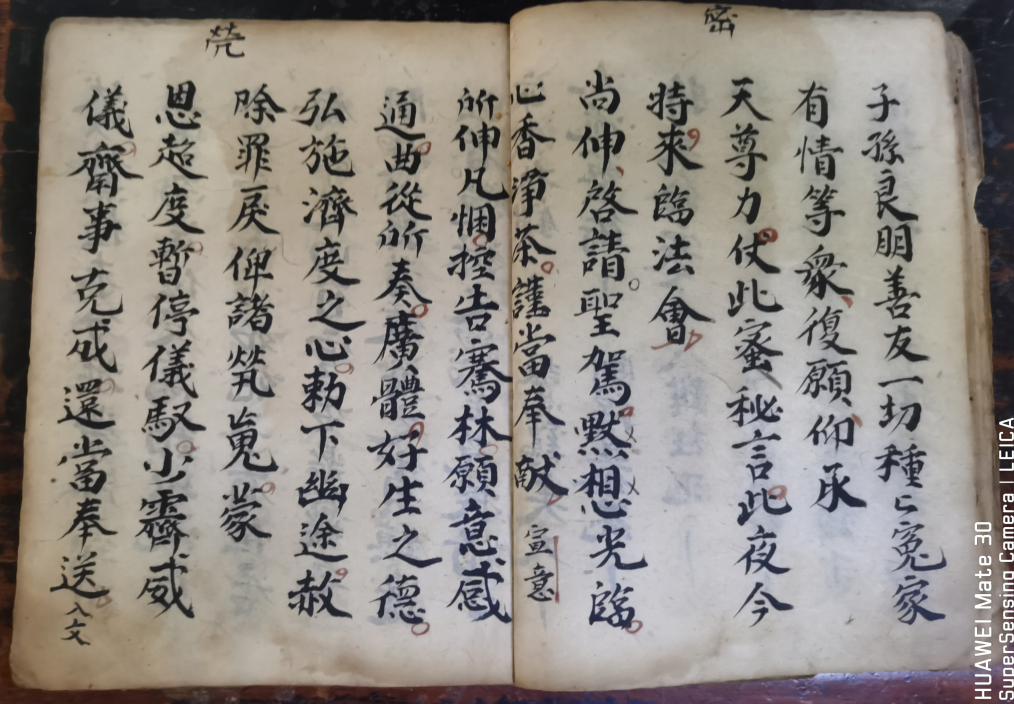 密
子孫良朋善友一切種亡冤家
有情等衆復願仰承
天尊力仗此蜜秘言此夜今
時來臨法會
尚伸啓請聖駕默想光臨
心香淨茶謹當奉献宣意
所伸凡悃控告騫林願意感
通曲從所奏廣體好生之德
弘施濟度之心勅下幽途赦
除罪戾俾諸煢嵬蒙
恩超度暫停儀馭少霽威
儀齋事克成還當奉送入文
HUAWEI Mate 30
SuperSensing Camera | LEICA